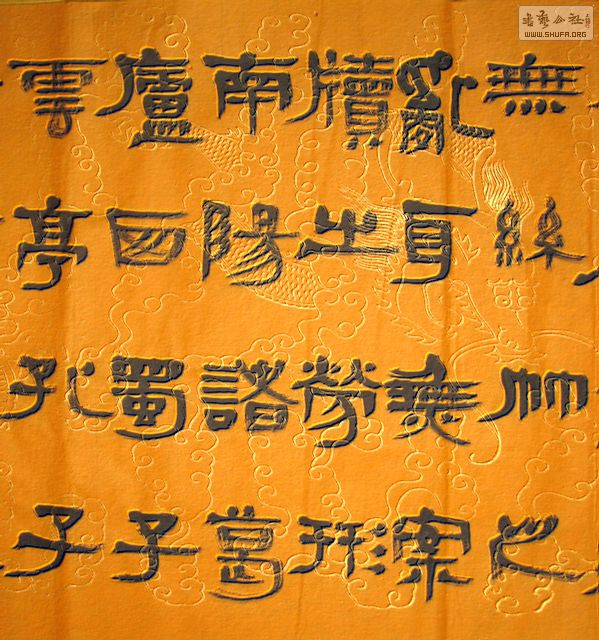 無絲竹之
亂耳無案
牘之勞形
南陽諸葛
廬西蜀子
雲亭孔子
WWW.SHUFA.ORG